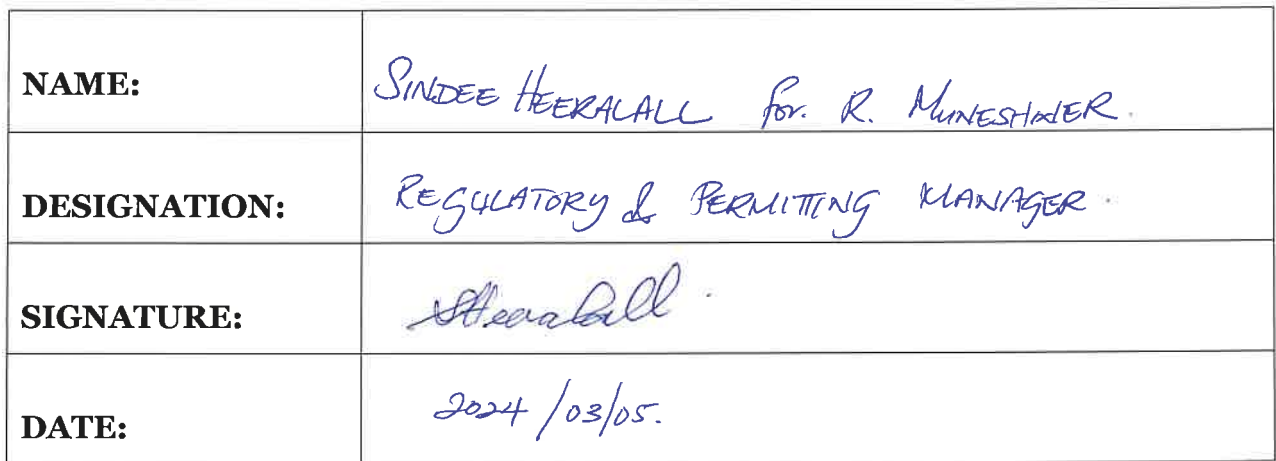 NAME: SINDEE HEERALALL for. R. MUNESHWER.
DESIGNATION: REGULATORY & PERMITTING MANAGER.
SIGNATURE: SHeeralall
DATE: 2024/03/05.